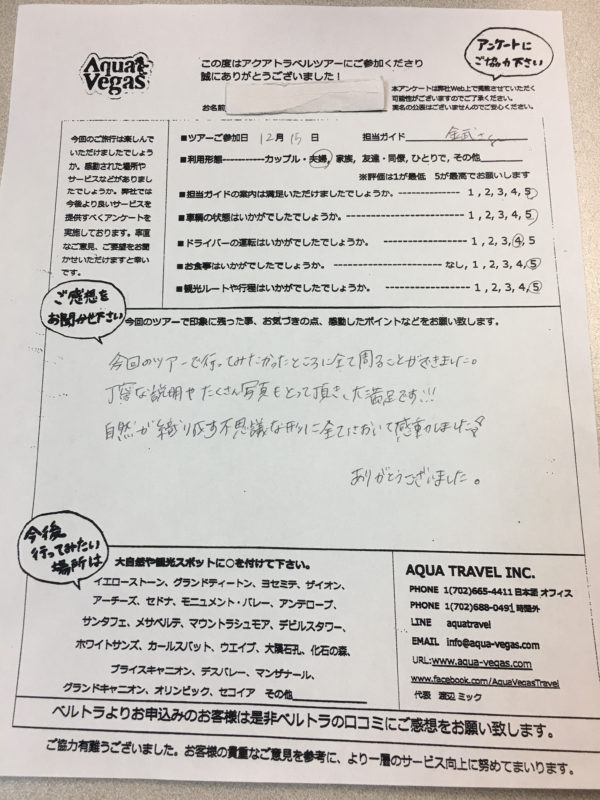 Aqua Vegas
この度はアクアトラベルツアーにご参加くださり
誠にありがとうございました！
アンケートに
ご協力下さい
お名前
本アンケートは弊社Web上で掲載させていただく
可能性がございますのでご了承ください。
実名の公表はございませんのでご安心ください。
今回のご旅行は楽しんで
いただけましたでしょう
か。感動された場所や
サービスなどがありまし
たでしょうか。弊社では
今後より良いサービスを
提供すべくアンケートを
実施しております。率直
なご意見、ご要望をお聞
かせいただけますと幸い
です。
■ツアーご参加日 12月 15日 担当ガイド 金武さん
■利用形態------------カップル・夫婦, 家族, 友達・同僚, ひとりで, その他
※評価は1が最低 5が最高でお願いします
■担当ガイドの案内は満足いただけましたでしょうか。 ---------- 1 , 2, 3, 4, 5
■車輌の状態はいかがでしたでしょうか。 ---------- 1 , 2, 3, 4, 5
■ドライバーの運転はいかがでしたでしょうか。 ---------- 1 , 2, 3, 4, 5
■お食事はいかがでしたでしょうか。 ---------- なし, 1 , 2, 3, 4, 5
■観光ルートや行程はいかがでしたでしょうか。 ---------- 1 , 2, 3, 4, 5
ご感想を
お聞かせ下さい
今回のツアーで印象に残った事、お気づきの点、感動したポイントなどをお願い致します。
今回のツアーで行ってみたかったところに全て周ることができました。
丁寧な説明やたくさん写真もとって頂き、大満足です!!!
自然が織り成す不思議な形に全てにおいて感動しました
ありがとうございました。
今後
行ってみたい
場所は
大自然や観光スポットに○を付けて下さい。
イエローストーン、グランドティートン、ヨセミテ、ザイオン、
アーチーズ、セドナ、モニュメント・バレー、アンテロープ、
サンタフェ、メサベルデ、マウントラシュモア、デビルスタワー、
ホワイトサンズ、カールスバット、ウエイブ、大隕石孔、化石の森、
ブライスキャニオン、デスバレー、マンザナール、
グランドキャニオン、オリンピック、セコイア その他
AQUA TRAVEL INC.
PHONE 1(702)665-4411 日本語 オフィス
PHONE 1(702)688-0491 時間外
LINE aquatravel
EMAIL info@aqua-vegas.com
URL:www.aqua-vegas.com
www.facebook.com/AquaVegasTravel
代表 渡辺 ミック
ベルトラよりお申込みのお客様は是非ベルトラの口コミにご感想をお願い致します。
ご協力有難うございました。お客様の貴重なご意見を参考に、より一層のサービス向上に努めてまいります。